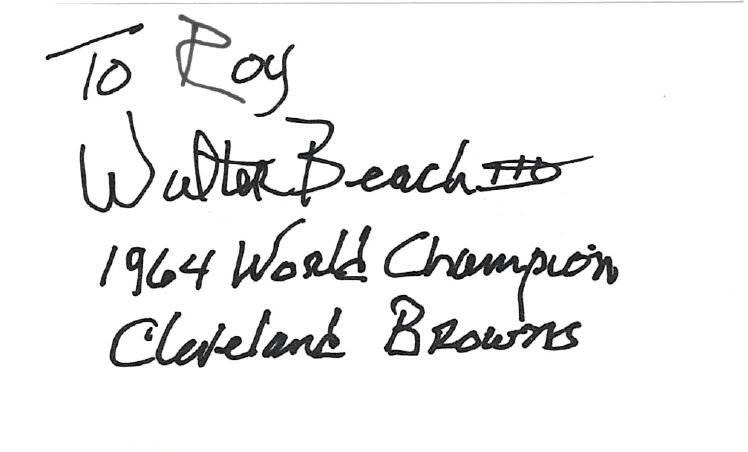 To Roy
Walter Beach III
1964 World Champion
Cleveland Browns